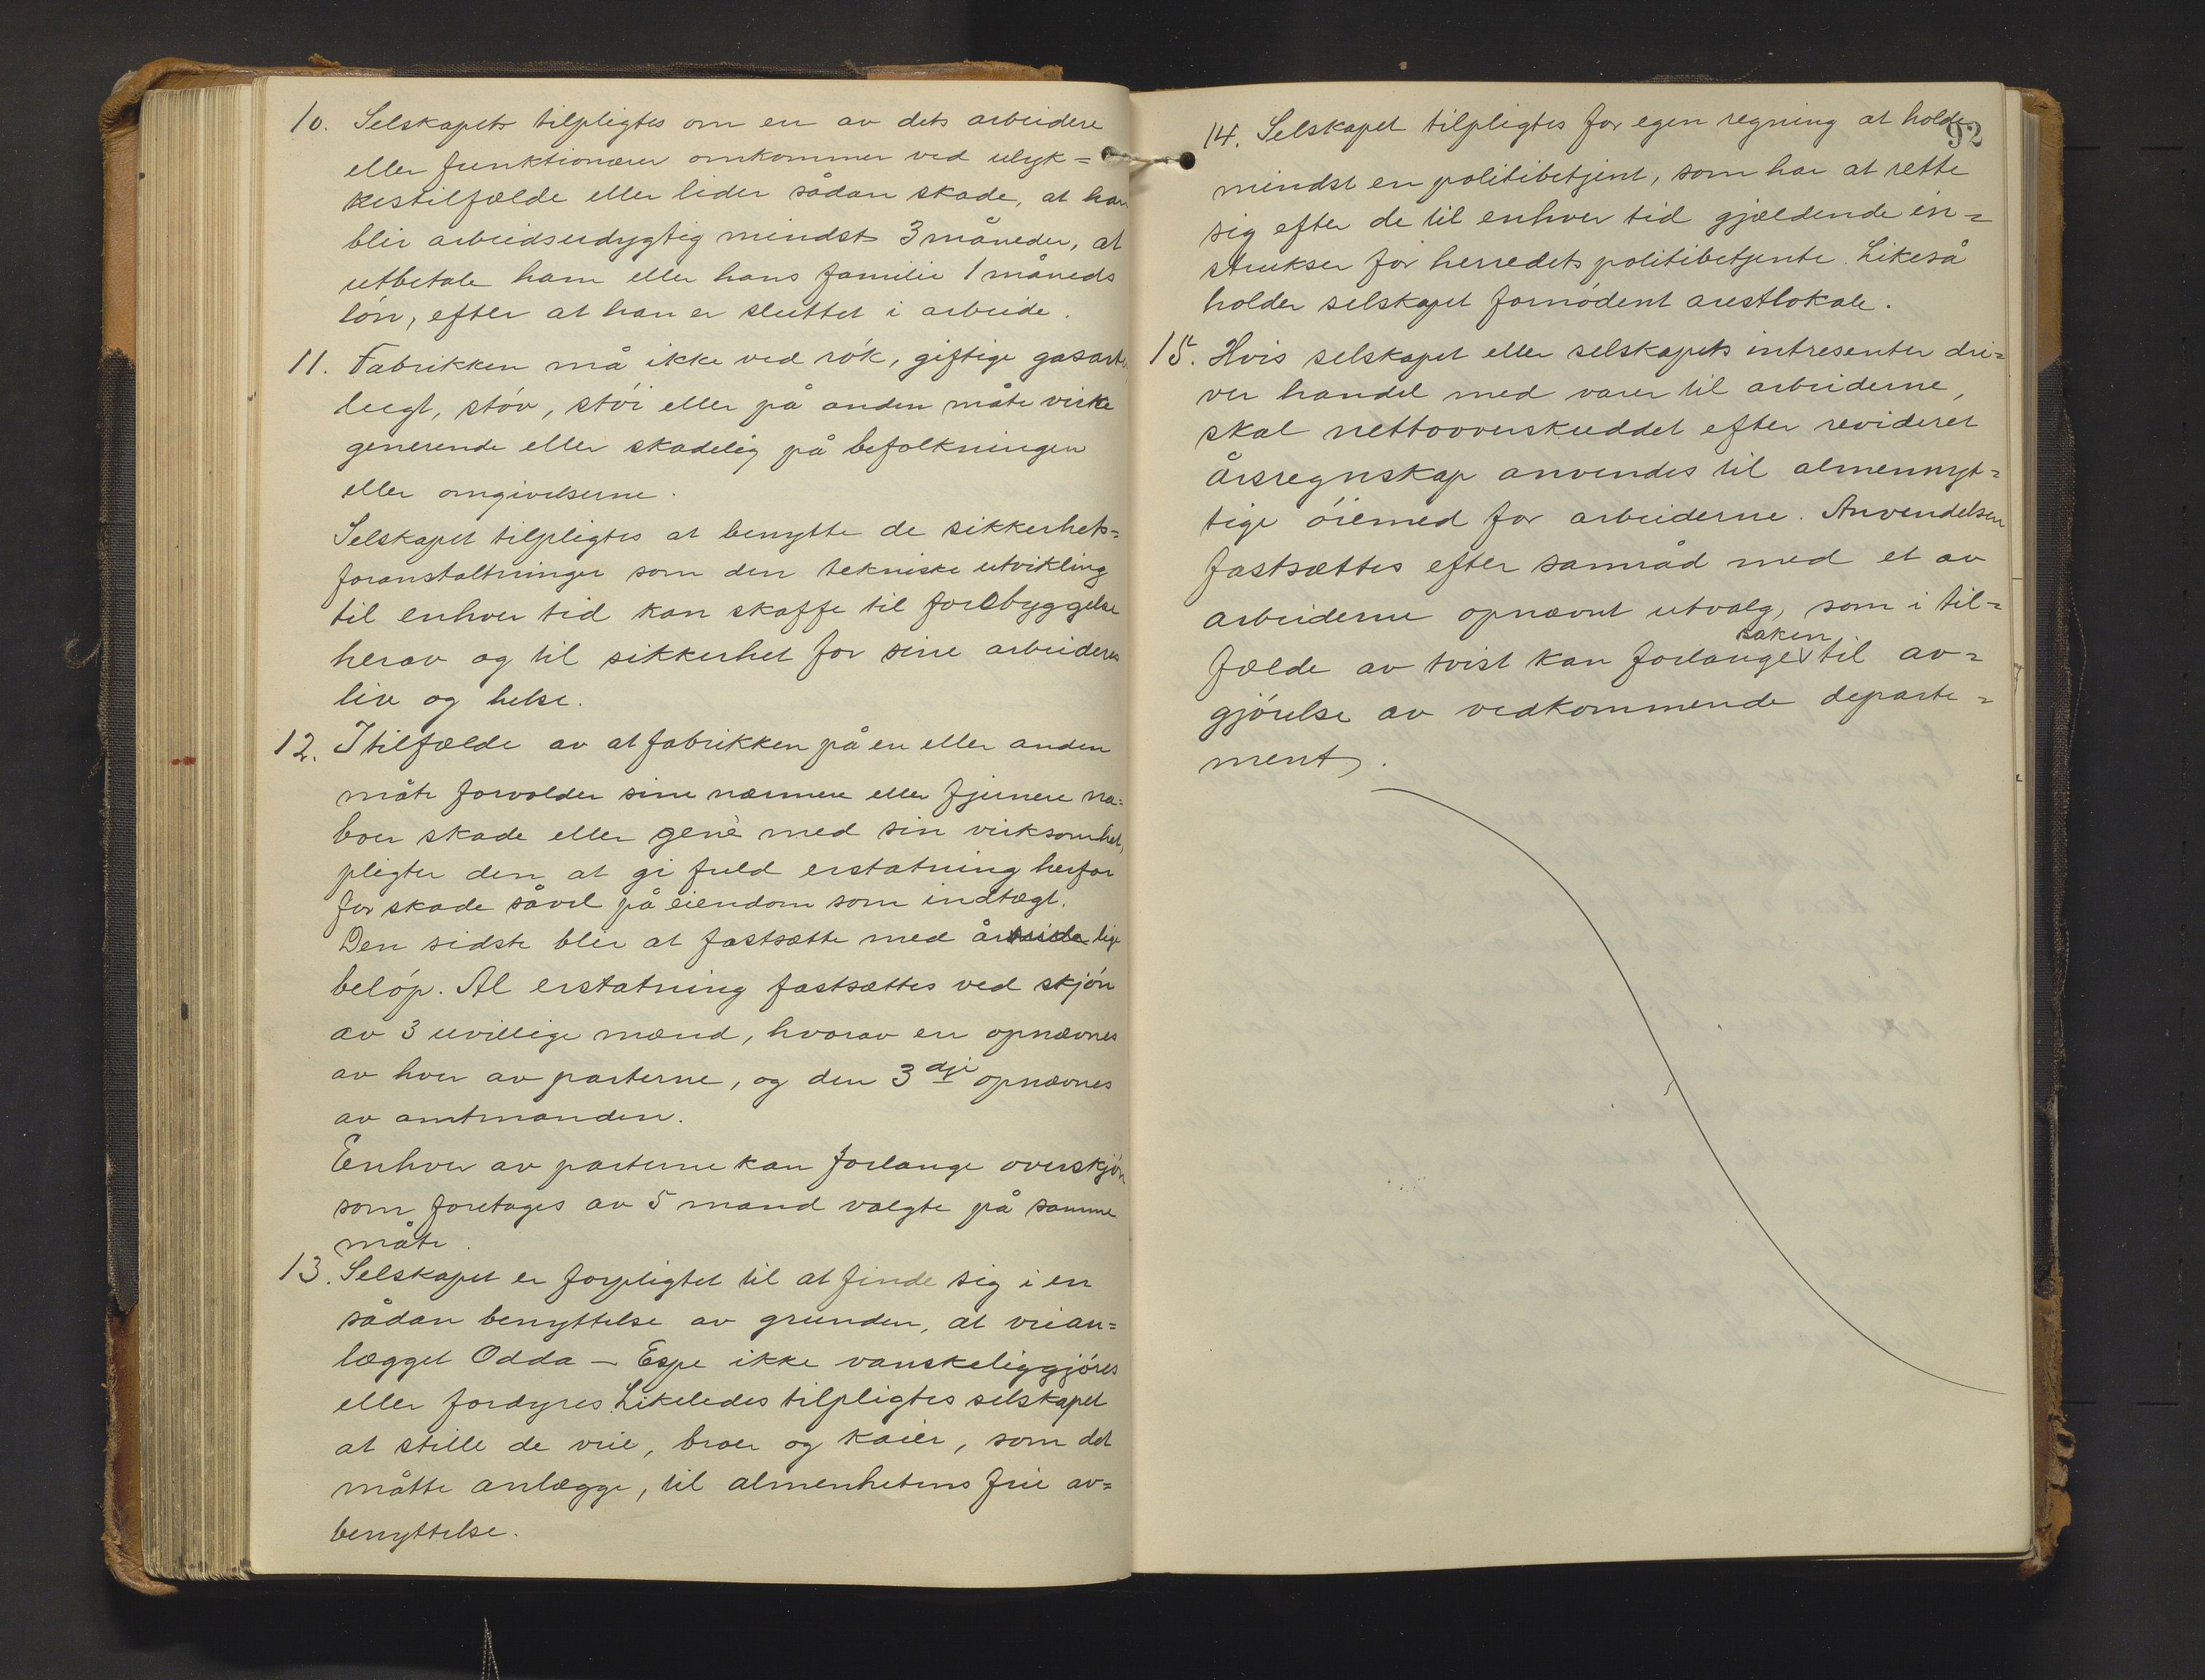 10. Selskapet tilpligtes om en av dets arbeidere
eller funktionærer omkommer ved ulyk=
kestilfælde eller lider sådan skade, at han
blir arbeidsudygtig mindst 3 måneder, at
utbetale ham eller hans familie 1 måneds
lön, efter at han er sluttet i arbeide.
11. Fabrikken må ikke ved rök, giftige gasarter,
lugt, stöv, stöi eller på anden måte virke
generende eller skadelig på befolkningen
eller omgivelserne.
Selskapet tilpligtes at benytte de sikkerhets=
foranstaltninger som den tekniske utvikling
til enhver tid kan skaffe til forebyggelse
herav og til sikkerhet for sine arbeideres
liv og helse.
12. I tilfælde av at fabrikken på en eller anden
måte forvolder sine nærmere eller fjernere na=
boer skade eller gene med sin virksomhet,
pligter den at gi fuld erstatning herfor
for skade såvel på eiendom som indtægt.
Den sidste blir at fastsætte med årlige
belöp. Al erstatning fastsættes ved skjön
av 3 uvillige mænd, hvorav en opnævnes
av hver av parterne, og den 3dje opnævnes
av amtmanden.
Enhver av parterne kan forlange overskjön
som foretages av 5 mand valgte på samme
måte.
13. Selskapet er forpligtet til at finde sig i en
sådan benyttelse av grunden, at veian=
lægget Odda – Espe ikke vanskeliggjöres
eller fordyres. Likeledes tilpligtes selskapet
at stille de veie, broer og kaier, som det
måtte anlægge, til almenhetens frie av=
benyttelse.
92
14. Selskapet tilpligtes for egen regning at holde
mindst en politibetjent, som har at rette
sig efter de til enhver tid gjældende in=
strukser for herredets politibetjente. Likeså
holder selskapet fornödent arestlokale.
15. Hvis selskapet eller selskapets intresenter dri=
ver handel med varer til arbeiderne,
skal nettooverskuddet efter revideret
årsregnskap anvendes til almennyt=
tige öiemed for arbeiderne. Anvendelsen
fastsættes efter samråd med et av
arbeiderne opnævnt utvalg, som i til=
fælde av tvist kan forlange saken til av=
gjörelse av vedkommende departe=
ment.